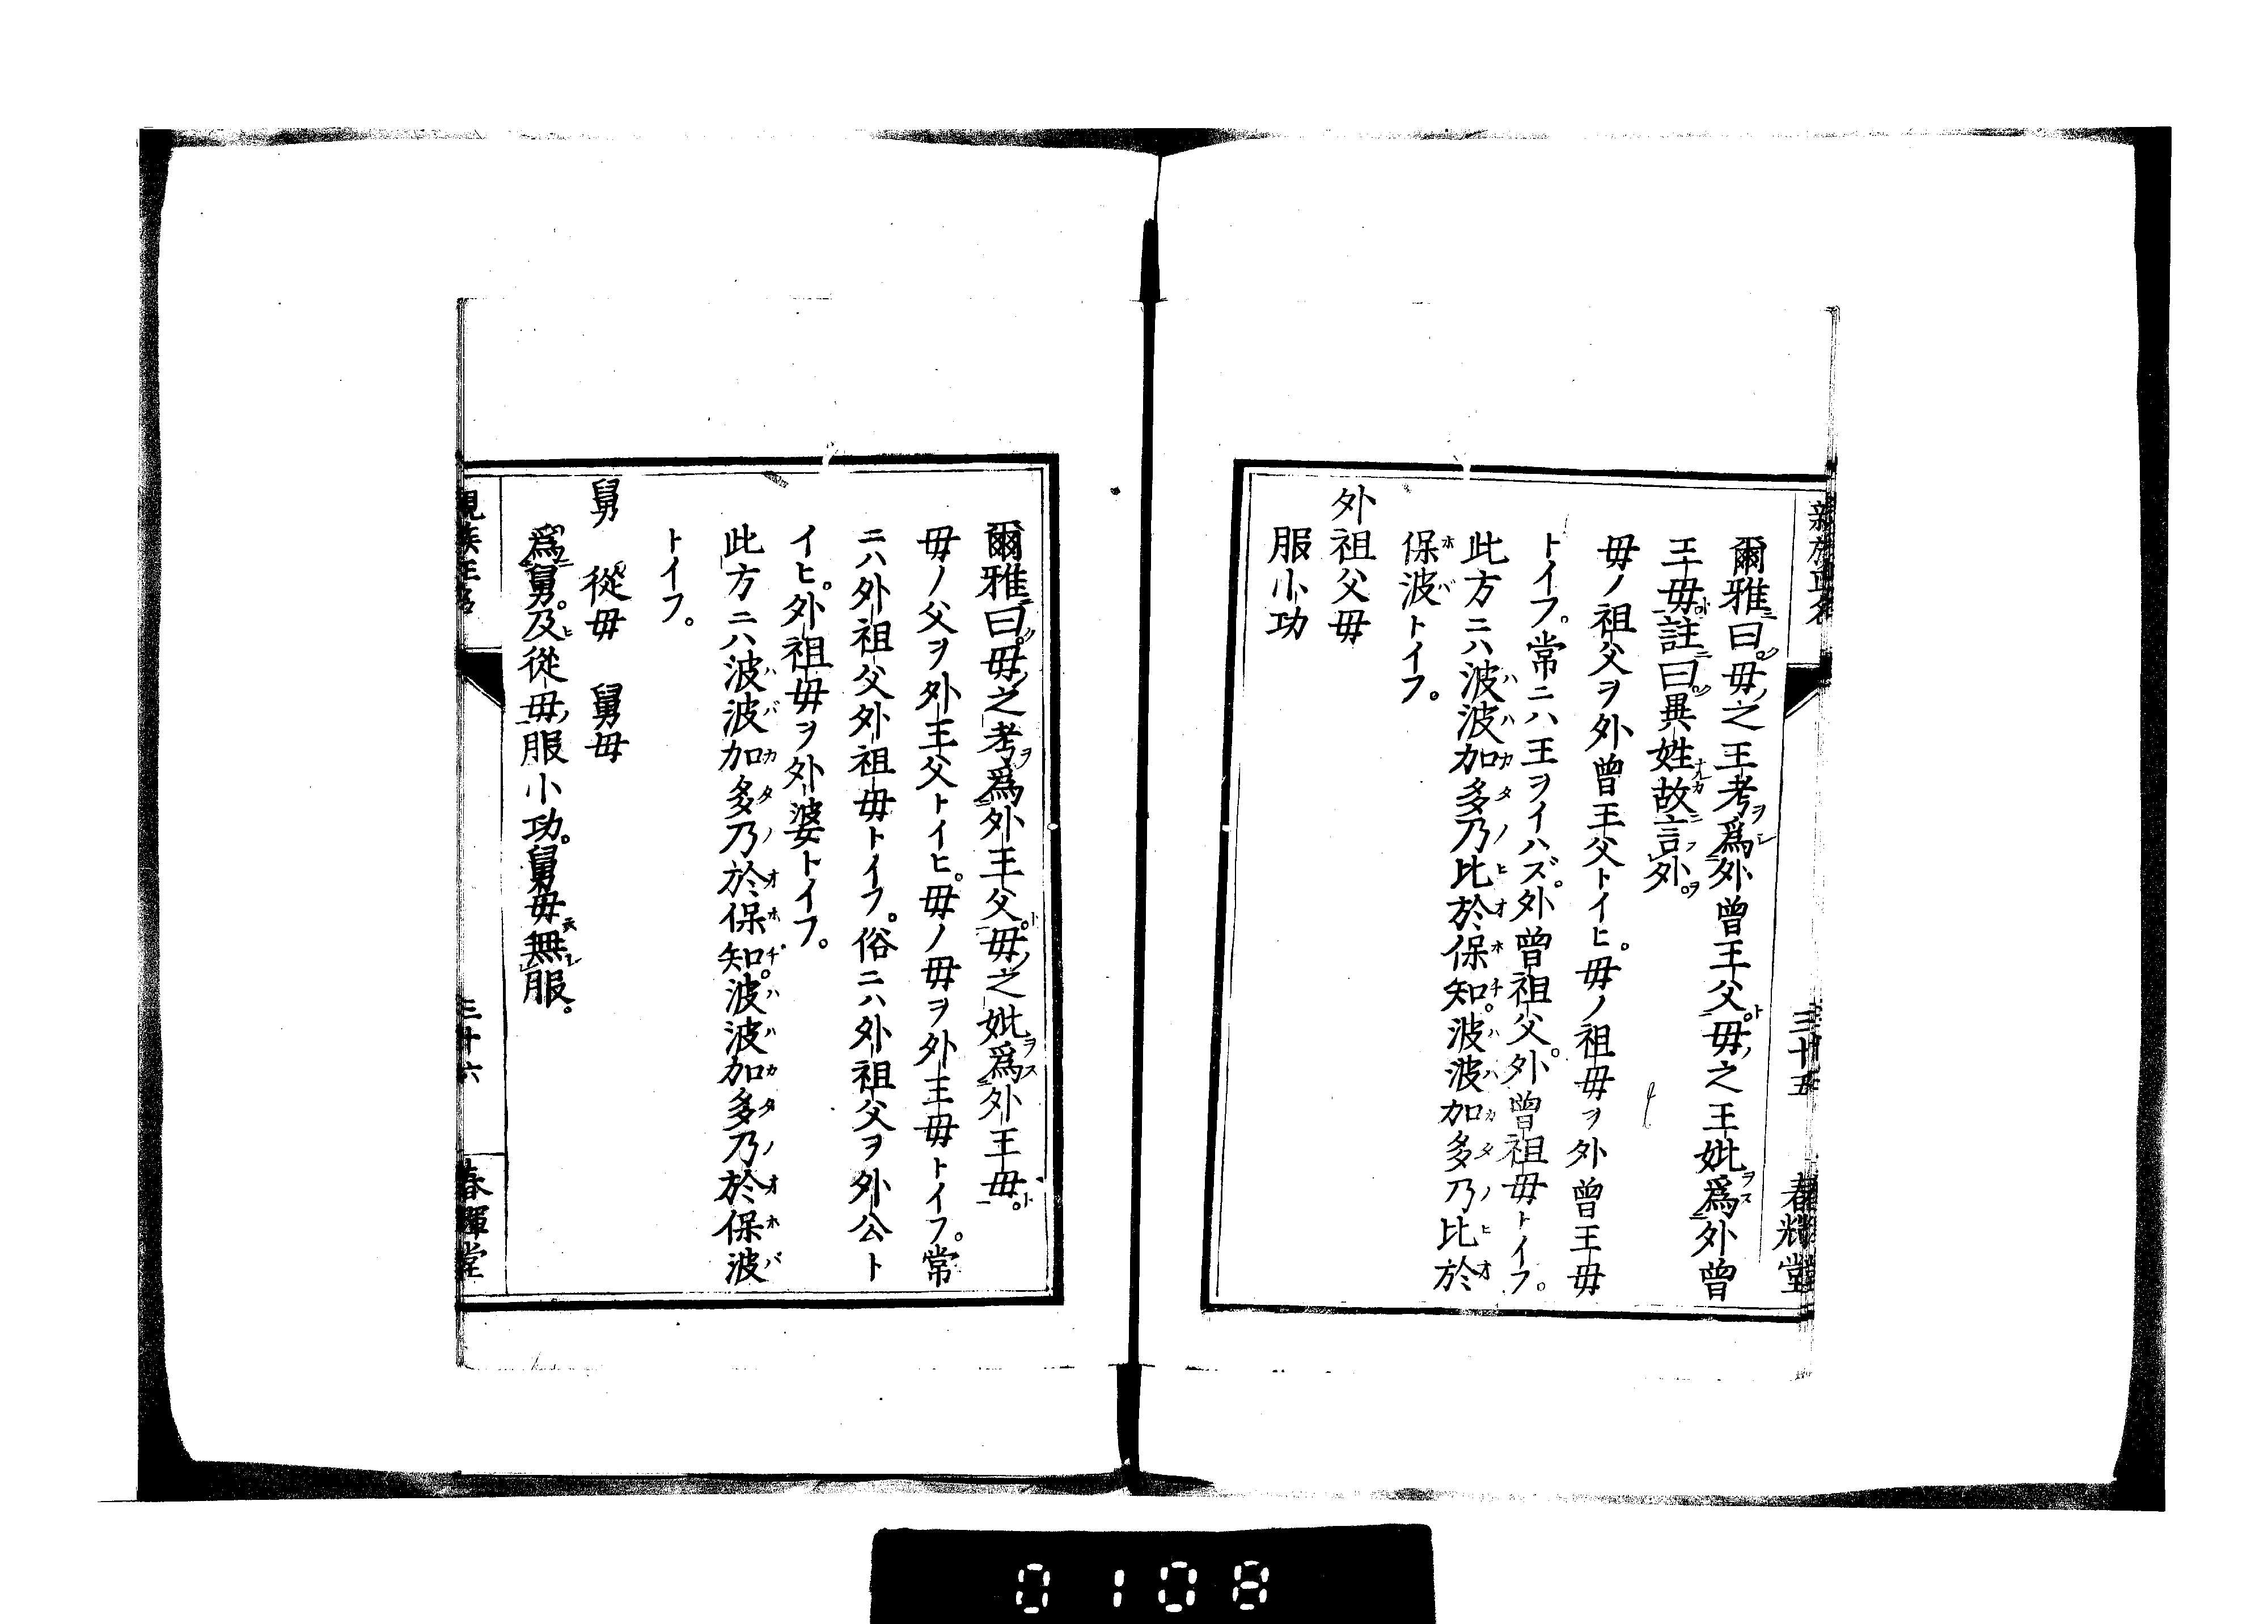 親族正名 三十五 春輝堂
爾雅曰。母之王考爲外曾王父。母之王妣爲外曾
王母。註曰異姓故言外。
母ノ祖父ヲ外曾王父トイヒ。母ノ祖母ヲ外曾王母
トイフ。常ニハ王ヲイハズ。外曾祖父。外曾祖母トイフ。
此方ニハ波波加多乃比於保知。波波加多乃比於
保波トイフ。
外祖父母
服小功
爾雅曰。母之考爲外王父。母之妣爲外王母。
母ノ父ヲ外王父トイヒ。母ノ母ヲ外王母トイフ。常
ニハ外祖父外祖母トイフ。俗ニハ外祖父ヲ外公ト
イヒ。外祖母ヲ外婆トイフ。
此方ニハ波波加多乃於保知。波波加多乃於保波
トイフ。
舅 從母 舅母
爲舅。及從母服小功。舅母無服。
親族正名 三十六 春輝堂
0108